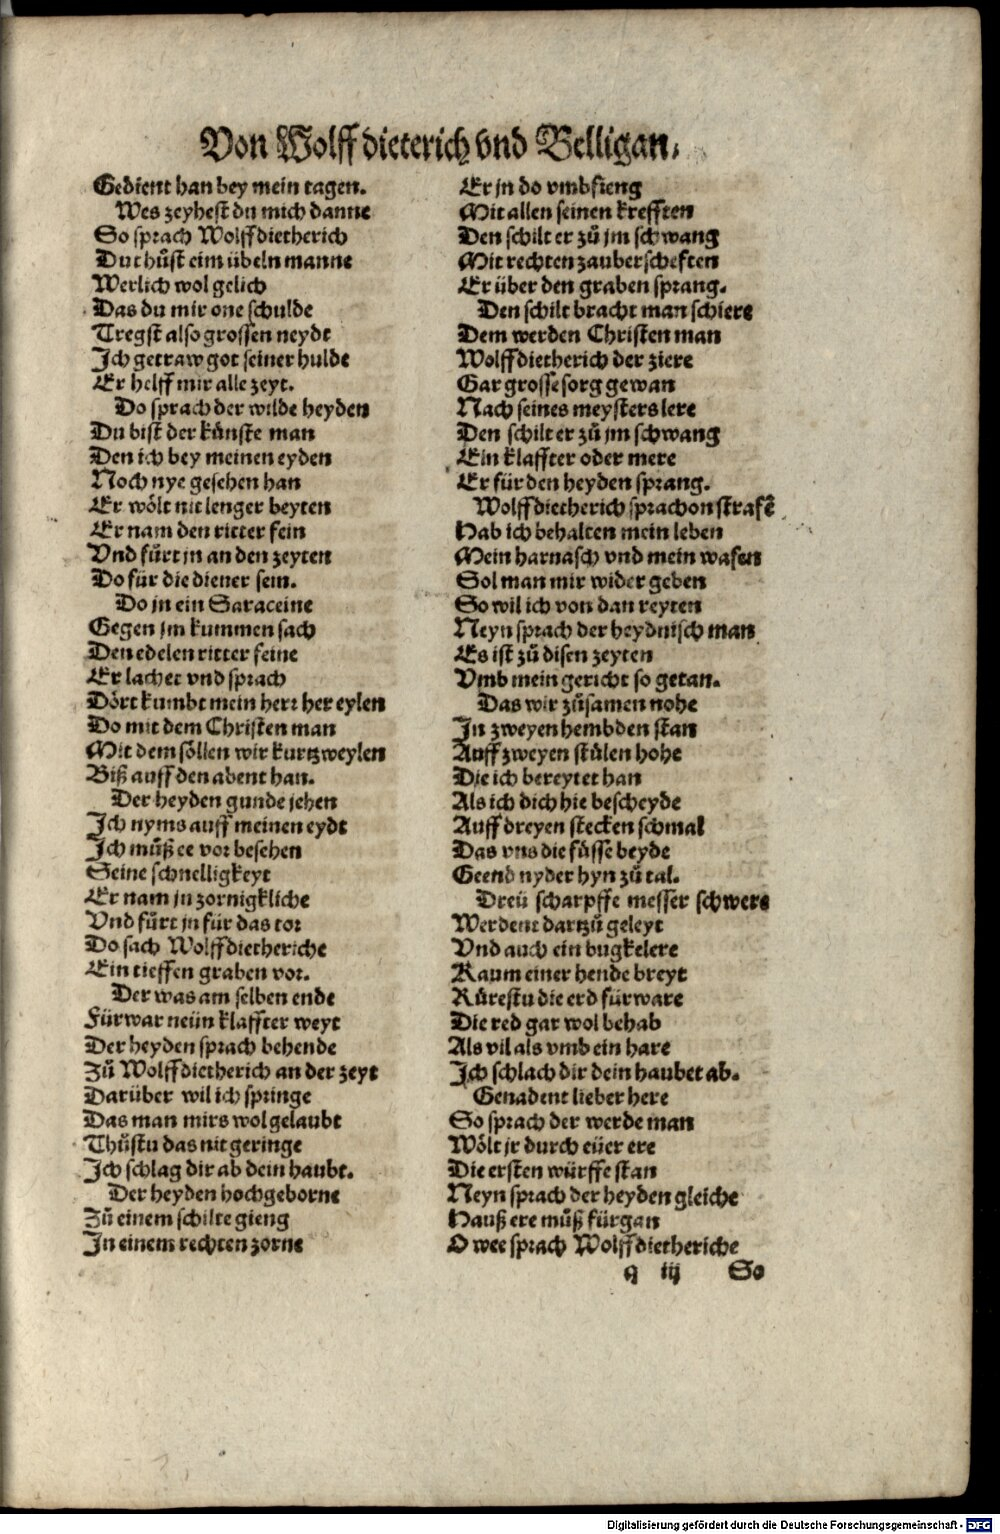 Von Wolffdieterich vnd Belligan.
Gedient han bey mein tagen.
Wes zeyhest du mich danne
So sprach Wolffdietherich
Du thůst eim übeln manne
Werlich wol gelich
Das du mir one schulde
Tregst also grossen neydt
Ich getraw got seiner hulde
Er helff mir alle zeyt.
Do sprach der wilde heyden
Du bist der künste man
Den ich bey meinen eyden
Noch nye gesehen han
Er wölt nit lenger beyten
Er nam den ritter fein
Vnd fürt jn an den zeyten
Do für die diener sein.
Do jn ein Saraceine
Gegen jm kummen sach
Den edelen ritter feine
Er lachet vnd sprach
Dört kumbt mein herr her eylen
Do mit dem Christen man
Mit dem söllen wir kurtzweylen
Biß auff den abent han.
Der heyden gunde jehen
Ich nyms auff meinen eydt
Ich můß ee vor besehen
Seine schnelligkeyt
Er nam jn zornigkliche
Vnd fürt jn für das tor
Do sach Wolffdietheriche
Ein tieffen graben vor.
Der was am selben ende
Fürwar neün klaffter weyt
Der heyden sprach behende
Zů Wolffdietherich an der zeyt
Darüber wil ich springe
Das man mirs wol gelaubt
Thůstu das nit geringe
Ich schlag dir ab dein haubt.
Der heyden hochgeborne
Zů einem schilte gieng
In einem rechten zorne
Er jn do vmbfieng
Mit allen seinen krefften
Den schilt er zů jm schwang
Mit rechten zauberscheften
Er über den graben sprang.
Den schilt bracht man schiere
Dem werden Christen man
Wolffdietherich der ziere
Gar grosse sorg gewan
Nach seines meysters lere
Den schilt er zů jm schwang
Ein klaffter oder mere
Er für den heyden sprang.
Wolffdietherich sprach on strafē
Hab ich behalten mein leben
Mein harnasch vnd mein wafen
Sol man mir wider geben
So wil ich von dan reyten
Neyn sprach der heydnisch man
Es ist zů disen zeyten
Vmb mein gericht so getan.
Das wir zůsamen nohe
In zweyen hembden stan
Auff zweyen stülen hohe
Die ich bereytet han
Als ich dich hie bescheyde
Auff dreyen stecken schmal
Das vns die füsse beyde
Geend nyder hyn zů tal.
Dreü scharpffe messer schwere
Werdent dartzů geleyt
Vnd auch ein bugkelere
Kaum einer hende breyt
Rürestu die erd fürware
Die red gar wol behab
Als vil als vmb ein hare
Ich schlach dir dein haubet ab.
Genadent lieber here
So sprach der werde man
Wölt jr durch eüer ere
Die ersten würffe stan
Neyn sprach der heyden gleiche
Hauß ere můß fürgan
O wee sprach Wolffdietheriche
q iij So
Digitalisierung gefördert durch die Deutsche Forschungsgemeinschaft - DFG